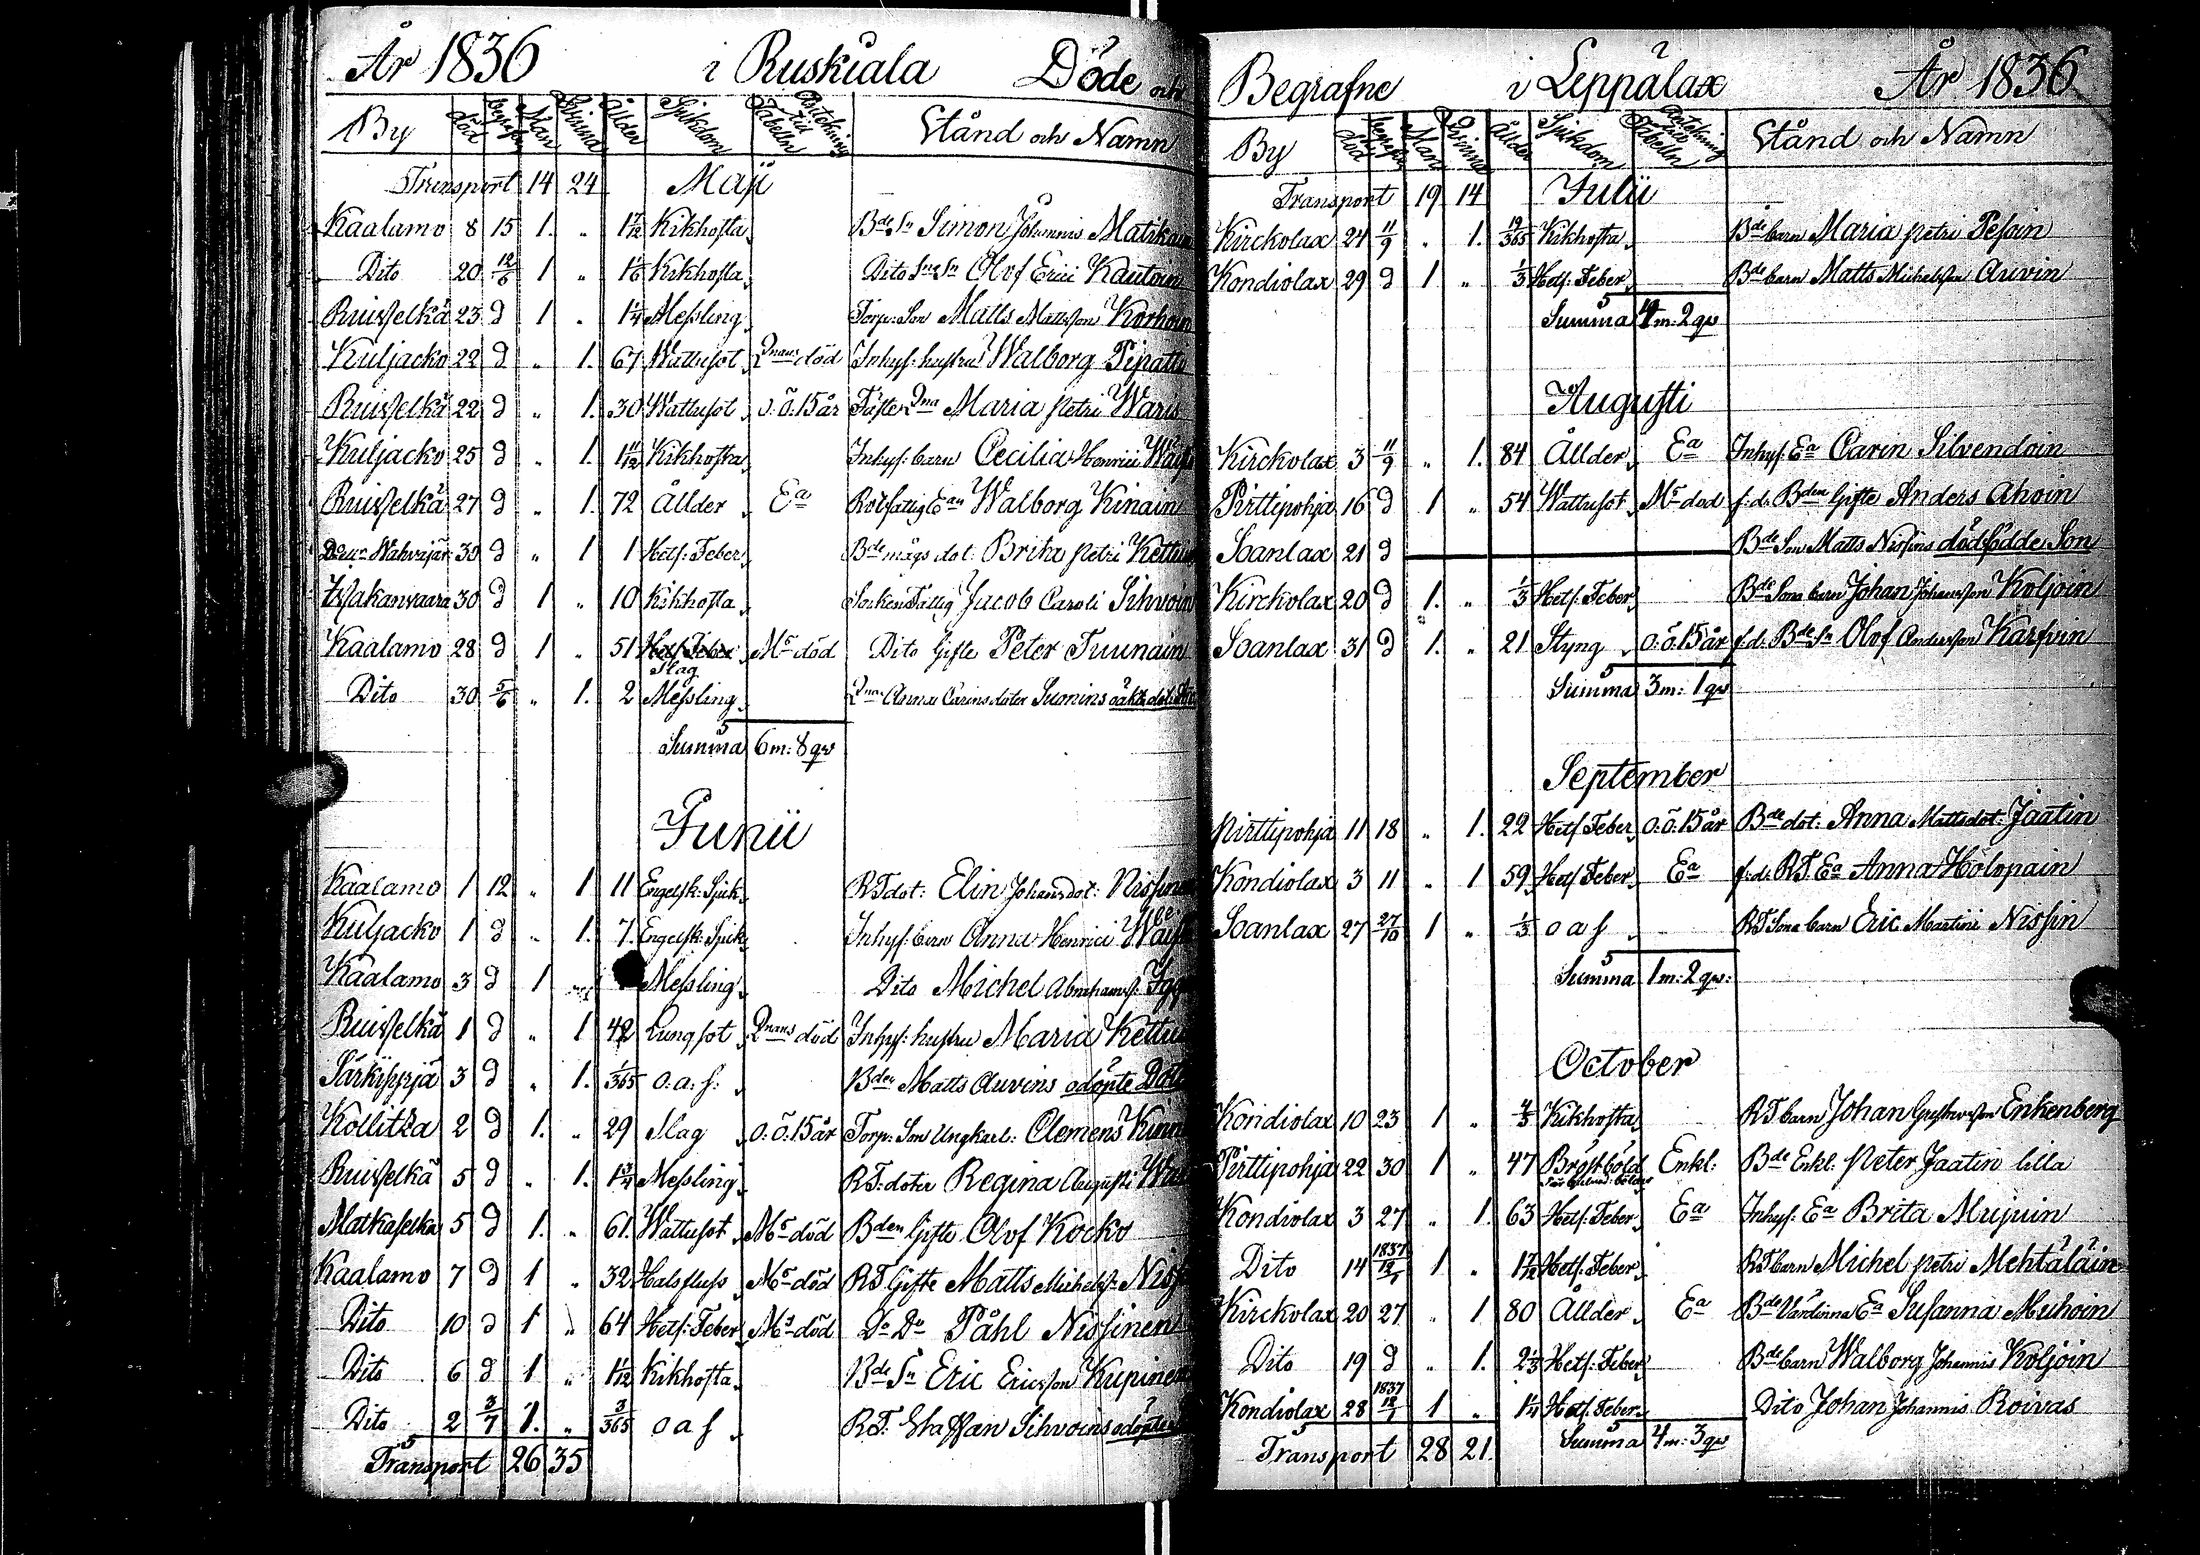 År 1836 i Ruskiala Döde och
By död begrafen Man Qvinna Ålder Sjukdom Anteckning till Tabellen Stånd och Namn
Transport 14 24 Maji
Kaalamo 8 15 1. " 1 7/12 Kikhosta Bde Sn Simon Johannis Matikain
Dito 20 12/6 1 " Kikhosta Dito Olof Erici Kautoin
Ruisselkä 23 d 1 " 1 1/4 Messling Torp: Son Matts Mattsson Korhoin
Kuljacko 22 d " 1. 67 Wattusot Qnans död Inhys: hustru Walborg Pipatti
Ruisselkä 22 d " 1. 30 Wattusot o: ö: 15 år Fäste Qna Maria Petri Waris
Kuljacko 25 d " 1. 1 11/12 Kikhosta Inhys: barn Cecilia Henrici
Ruisselkä 27 d " 1. 72 Ållder Ea Rotfattig Ean Walborg Kinain
Wahvajär 30 d " 1 1 Hets: Feber Bde mågs dot: Brita Petri Kettu
30 d 1 " 10 Kikhosta Sockenfattig Jacob Caroli Sihvoin
Kaalamo 28 d 1 " 51 Hets: Feber Ms död Dito Gifte Peter Tuunain
Slag
Dito 30 5/6 " 1. 2 Messling Qnan Anna Carins doter Suonins oäkta dot:
Summa 6 m: 8 qv
Junii
Kaalamo 1 12 " 1 11 Engelsk: Sjuk RT dot: Elin Johans dot: Nissin
Kuljacko 1 d " 1. 7. Engelsk: Sjuk Inhys: barn Anna Henrici
Kaalamo 3 d 1 " Messling Dito Michel Abrahamss:
Ruisselkä 1 d " 1 42 Lungsot Qnans död Inhys: hustru Maria Kettu
Särkisyrjä 3 d " 1. 1/365 o. a. s: Bden Matts Auvins odöpte Dot
Kollitza 2 d 1. " 29 Slag o: ö: 15 år Torp: Son Ungkarl: Clemens Kinn
Ruisselkä 5 d " 1. 1 3/4 Messling RT: doter Regina Augusti
Matkaselkä 5 d 1. " 61. Wattusot Ms död Bden Gifte Olof Kocko
Kaalamo 7 d 1 " 32 Halsfluss Ms död RT Gifte Matts Michelss: Niss
Dito 10 d 1 " 64 Hets: Feber Ms död Do Do Påhl Nissinen
Dito 6 d 1 " 1 1/12 Kikhosta Bde Sn Eric Ericsson Kupinen
Dito 2 3/7 1. " 3/365 o a s RT. Staffan Sihvoins odöpte
Transport 26 35
Begrafne i Leppälax År 1836
By död begrafen Man Qvinna Ålder Sjukdom Anteckning till Tabelln Stånd och Namn
Transport 19 14 Julii
Kirckolax 24 11/9 " 1. 19/365 Kikhosta Bde barn Maria Petri Pesoin
Kondiolax 29 d 1 " 1/3 Hets: Feber Bde barn Matts Michelsson Auvin
Summa m: 2 qv
Augusti
Kirckolax 3 11/9 " 1. 84 Ållder Ea Inhys: Ea Carin Silvendoin
Pirttipohja 16 d 1 " 54 Wattusot Ms död f. d. Bden Gifte Anders Ahoin
Soanlax 21 d Bde Son Matts Nissins dödfödde Son
Kirckolax 20 d 1. " 1/3 Hets: Feber Bde Sons barn Johan Johansson Koljoin
Soanlax 31 d 1. " 21 Styng o: ö: 15 år f. d. Bde Sn Olof Andersson Karsvin
Summa 3 m: 1 qv
September
Pirttipohja 11 18 " 1. 22 Hets: Feber o: ö: 15 år Bde dot: Anna Mattsdot: Jaatin
Kondiolax 3 11 " 1 59 Hets: Feber Ea f: d: RT Ea Anna Holopain
Soanlax 27 27/10 1 " 1/3 o a s RT Sons barn Eric Martini Nissin
Summa 1 m: 2 qv:
October
Kondiolax 10 23 1 " Kikhosta RT barn Johan Gustavsson Enkenberg
Pirttipohja 22 30 1 " 47 Bröstböld Enkl: Bde Enkl: Peter Jaatin lilla
Kondiolax 3 27 " 1. 63 Hets: Feber Ea Inhys: Ea Brita Mujuin
Dito 14 1837 12/1 1 " 1 7/12 Hets: Feber RT barn Michel Petri Mehtäläin
Kirckolax 20 27 " 1 80 Ållder Ea Bde Värdinna Ea Susanna Muhoin
Dito 19 d " 1. 2 1/3 Hets: Feber Bde barn Walborg Johannis Koljoin
Kondiolax 28 1837 12/1 1 " 1 1/4 Hets: Feber Dito Johan Johannis Roivas
Transport 28 21. Summa 4 m: 3 qv